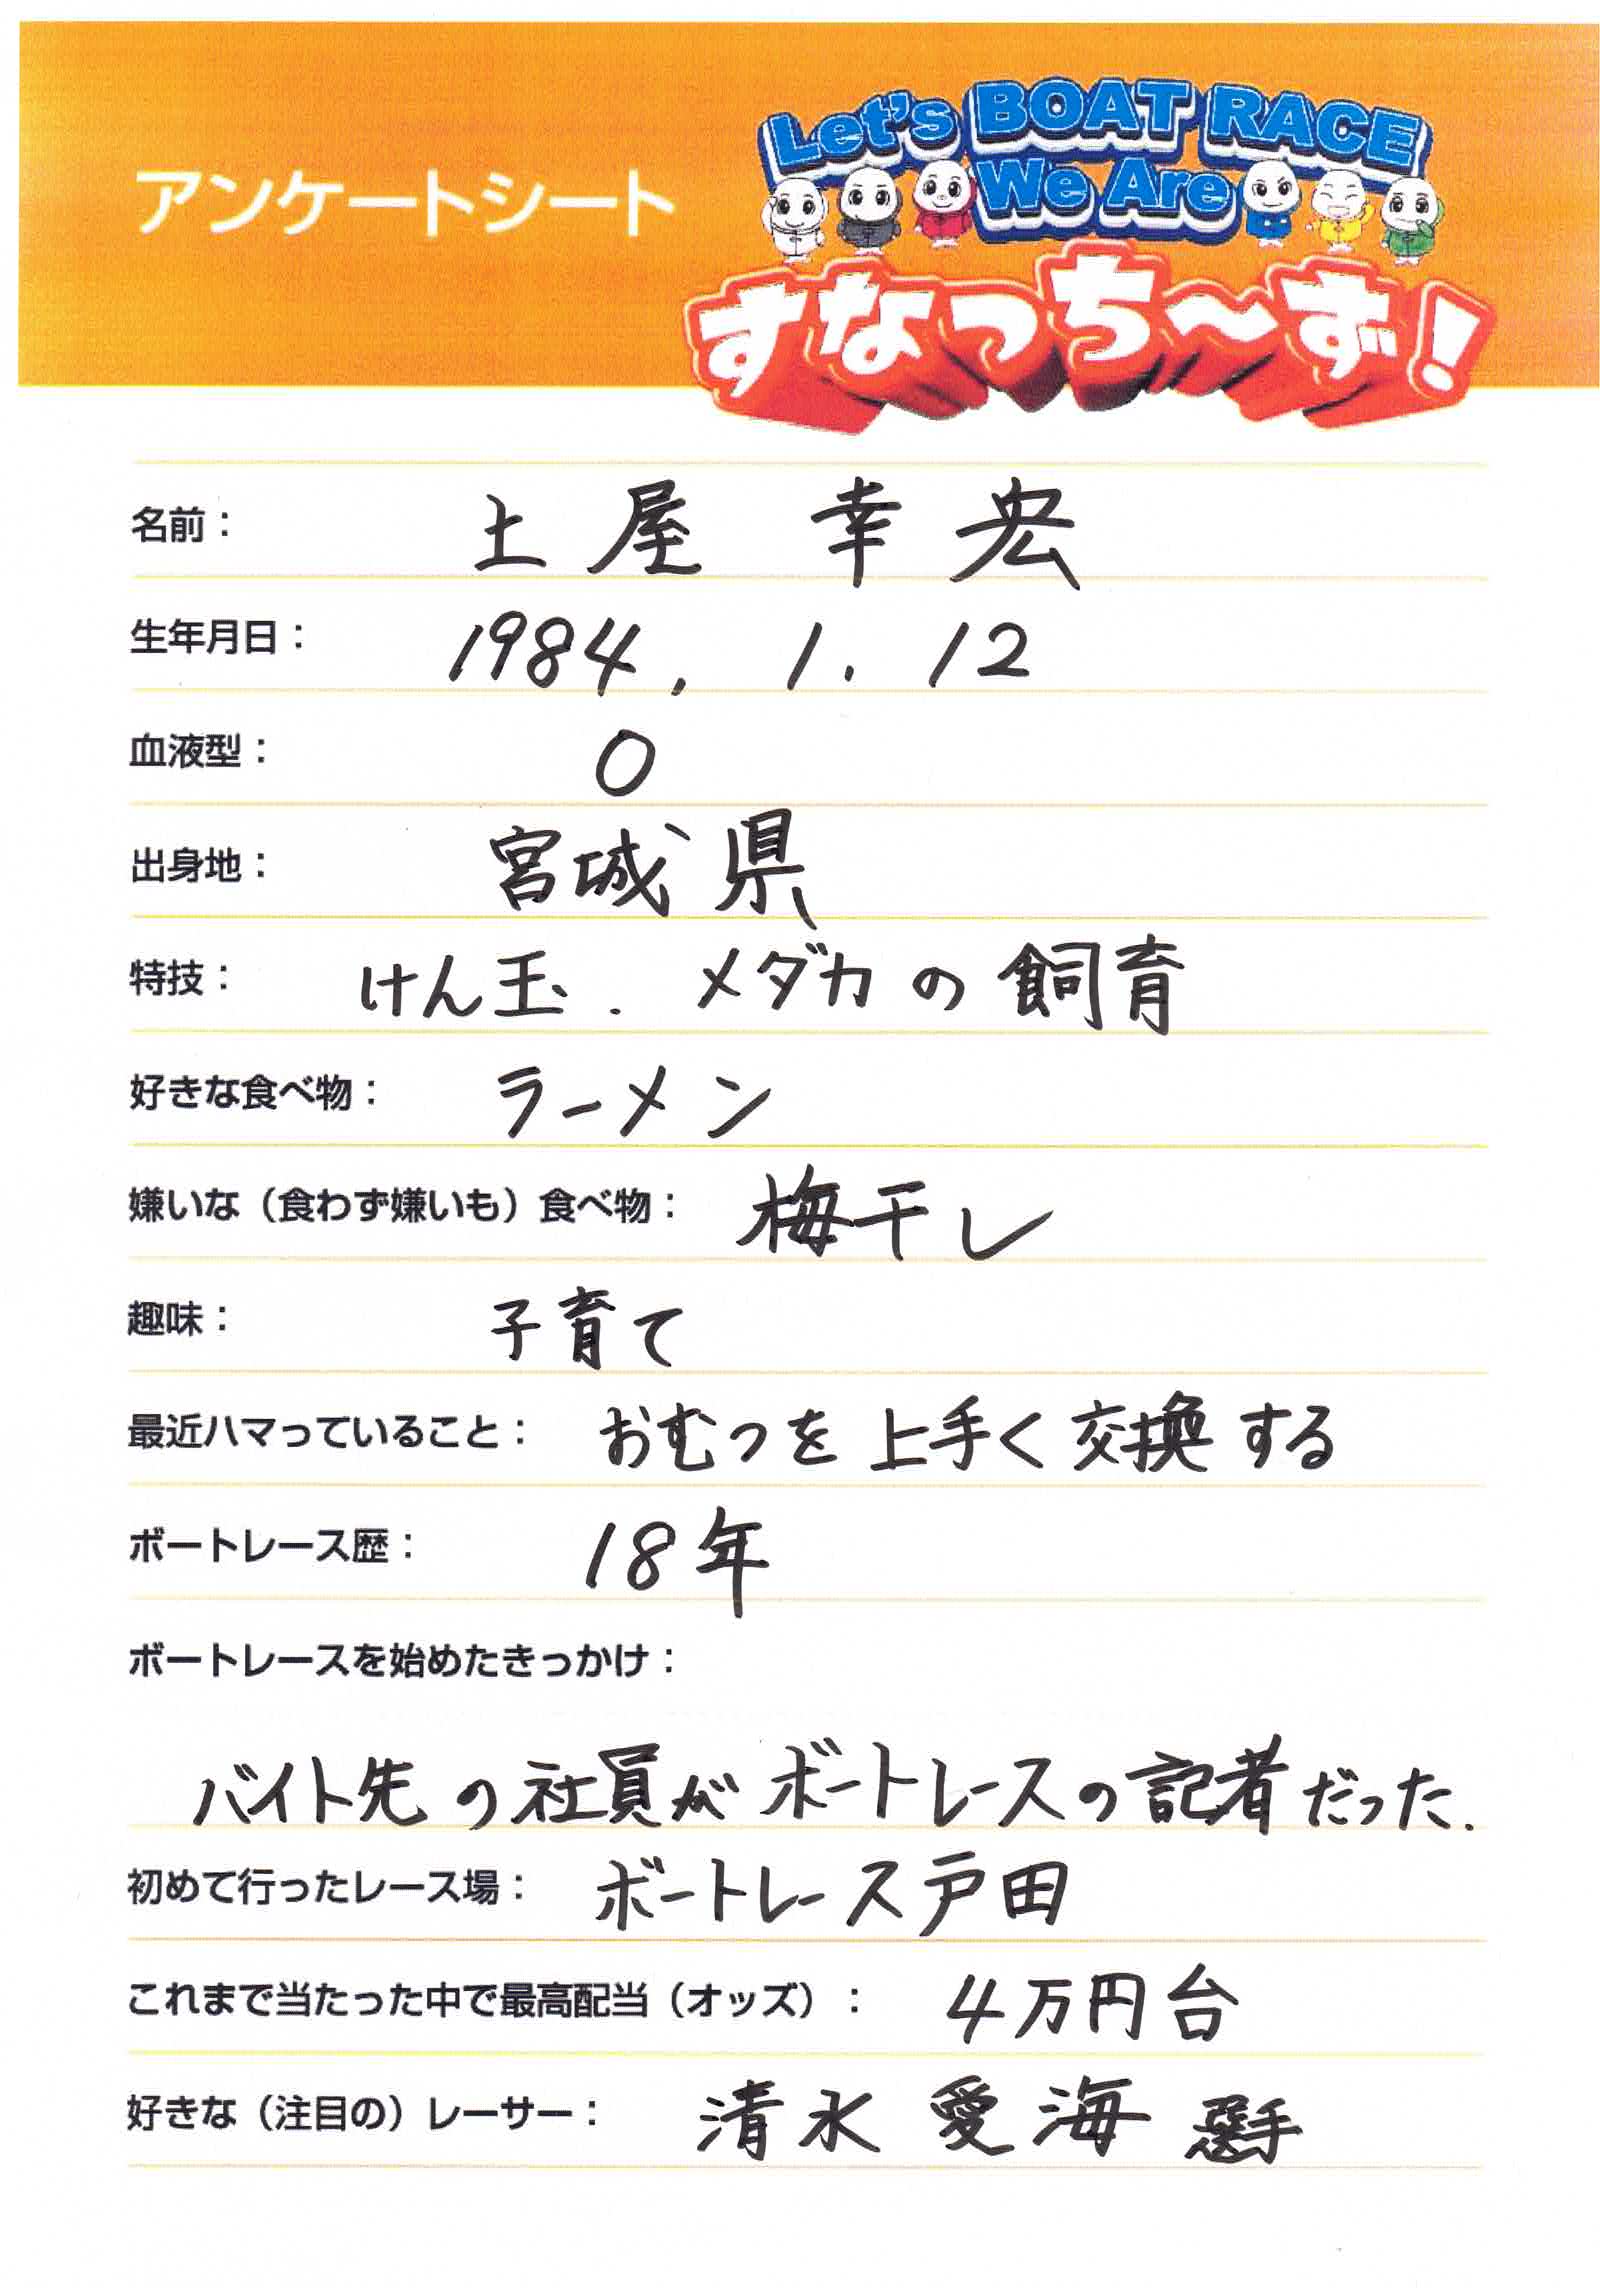 アンケートシート
Let's BOAT RACE
We Are
すなっち～ず！
名前： 土屋 幸宏
生年月日： 1984. 1. 12
血液型： O
出身地： 宮城県
特技： けん玉. メダカの飼育
好きな食べ物： ラーメン
嫌いな（食わず嫌いも）食べ物： 梅干し
趣味： 子育て
最近ハマっていること： おむつを上手く交換する
ボートレース歴： 18年
ボートレースを始めたきっかけ：
バイト先の社員がボートレースの記者だった.
初めて行ったレース場： ボートレース戸田
これまで当たった中で最高配当（オッズ）： 4万円台
好きな（注目の）レーサー： 清水 愛海 選手